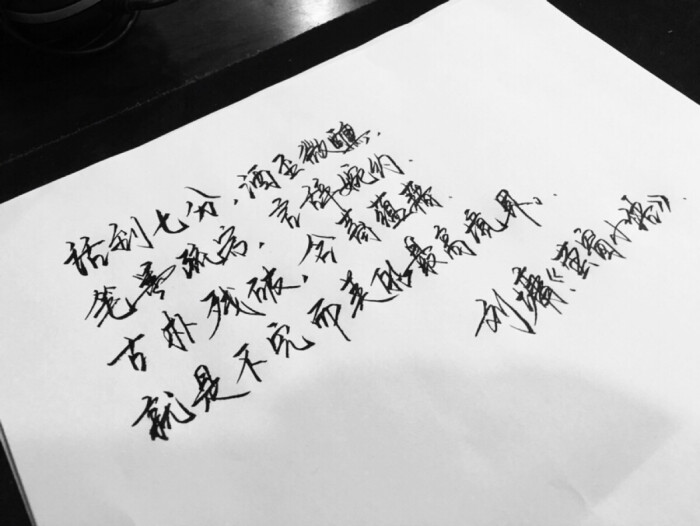 话到七分,酒至微醺.
笔墨疏宕,言辞婉约.
古朴残破,含蓄蕴藉.
就是不完而美的最高境界.
刘墉《萤窗小语》.